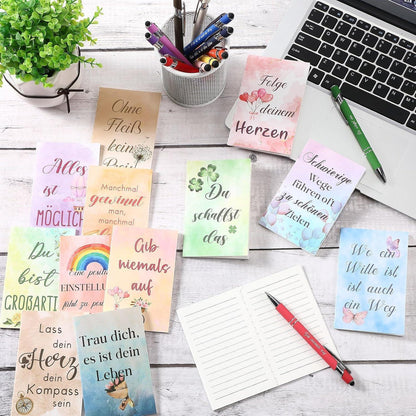 Ohne
Fleiß
kein
Preis
Folge
deinem
Herzen
Alles
ist
MÖGLICH
Manchmal
gewinnt
man,
manchmal
Du
schaffst
das
Schwierige
Wege
führen oft
zu schönen
Zielen
Du
bist
GROSSARTIG
eine positive
EINSTELLUNG
führt zu positiven
Gib
niemals
auf
Wo ein
Wille ist
ist auch
ein Weg
Lass
dein
Herz
dein
Kompass
sein
Trau dich,
es ist dein
Leben